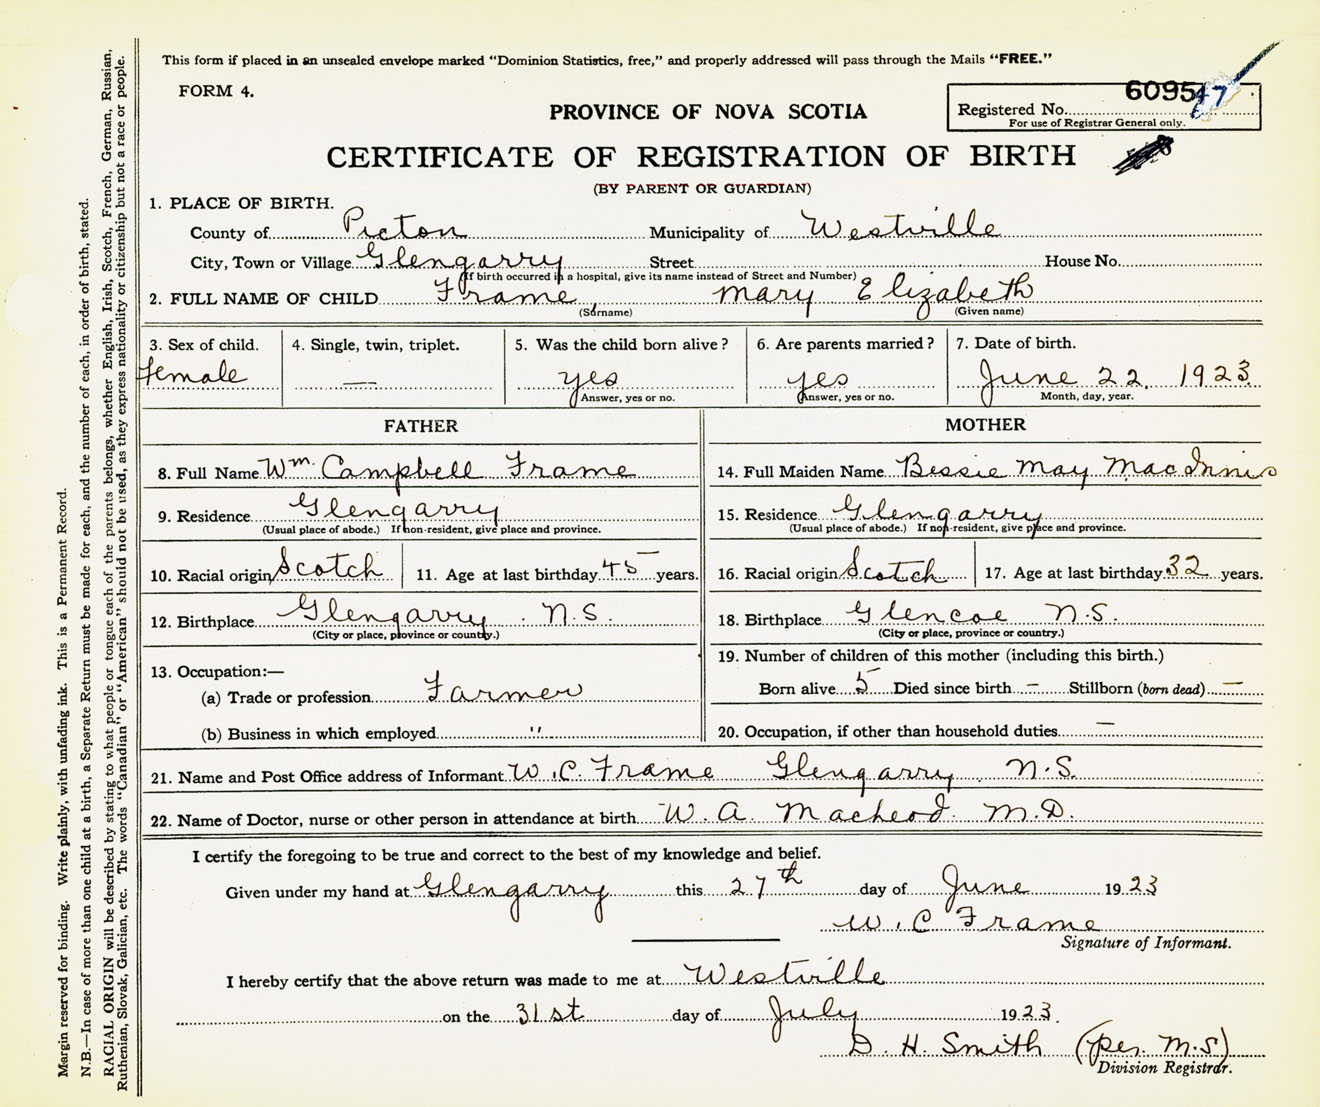 This form if placed in an unsealed envelope marked "Dominion Statistics, free," and properly addressed will pass through the Mails "FREE."
FORM 4.
PROVINCE OF NOVA SCOTIA
Registered No. 609547
For use of Registrar General only.
CERTIFICATE OF REGISTRATION OF BIRTH
(BY PARENT OR GUARDIAN)
1. PLACE OF BIRTH.
County of Picton Municipality of Westville
City, Town or Village Glengarry Street House No.
(If birth occurred in a hospital, give its name instead of Street and Number)
2. FULL NAME OF CHILD Frame, Mary Elizabeth
(Surname) (Given name)
3. Sex of child. 4. Single, twin, triplet. 5. Was the child born alive? 6. Are parents married? 7. Date of birth.
female — yes yes June 22 1923
Answer, yes or no. Answer, yes or no. Month, day, year.
FATHER
8. Full Name Wm. Campbell Frame
9. Residence Glengarry
(Usual place of abode.) If non-resident, give place and province.
10. Racial origin Scotch 11. Age at last birthday 45 years.
12. Birthplace Glengarry. N.S.
(City or place, province or country.)
13. Occupation:—
(a) Trade or profession Farmer
(b) Business in which employed "
MOTHER
14. Full Maiden Name Bessie May MacInnis
15. Residence Glengarry
(Usual place of abode.) If non-resident, give place and province.
16. Racial origin Scotch 17. Age at last birthday 32 years.
18. Birthplace Glencoe N.S.
(City or place, province or country.)
19. Number of children of this mother (including this birth.)
Born alive 5 Died since birth — Stillborn (born dead) —
20. Occupation, if other than household duties —
21. Name and Post Office address of Informant W. C. Frame Glengarry N.S.
22. Name of Doctor, nurse or other person in attendance at birth W. A. Macleod. M.D.
I certify the foregoing to be true and correct to the best of my knowledge and belief.
Given under my hand at Glengarry this 27th day of June 1923
W. C Frame
Signature of Informant.
I hereby certify that the above return was made to me at Westville
on the 31st day of July 1923.
D. H. Smith (per. M.S)
Division Registrar.
Margin reserved for binding. Write plainly, with unfading ink. This is a Permanent Record.
N.B.—In case of more than one child at a birth, a Separate Return must be made for each, and the number of each, in order of birth, stated.
RACIAL ORIGIN will be described by stating to what people or tongue each of the parents belongs, whether English, Irish, Scotch, French, German, Russian,
Ruthenian, Slovak, Galician, etc. The words "Canadian" or "American" should not be used, as they express nationality or citizenship but not a race or people.